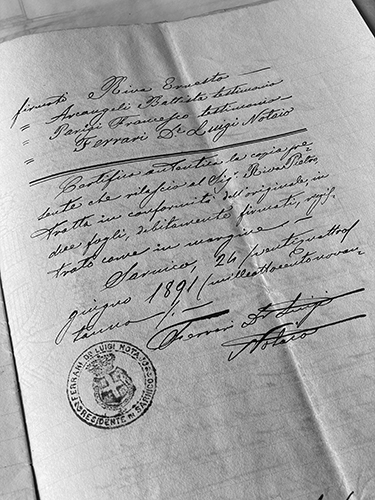 firmati Riva Ernesto —
" Arcangeli Battista testimonio
" Parigi Francesco testimonio —
" Ferrari Dr Luigi Notaio
Certifico autentica la copia pre-
sente che rilascio al Sig. Riva Pietro,
tratta in conformità dell'originale, in
due fogli, debitamente firmati, regis-
trato come in margine
Sarnico, 24/ventiquattro/
giugno 1891/milleottocentonovan-
tauno/. —
Ferrari Dr Luigi
Notaio
FERRARI DR LUIGI NOTAIO
RESIDENTE IN SARNICO